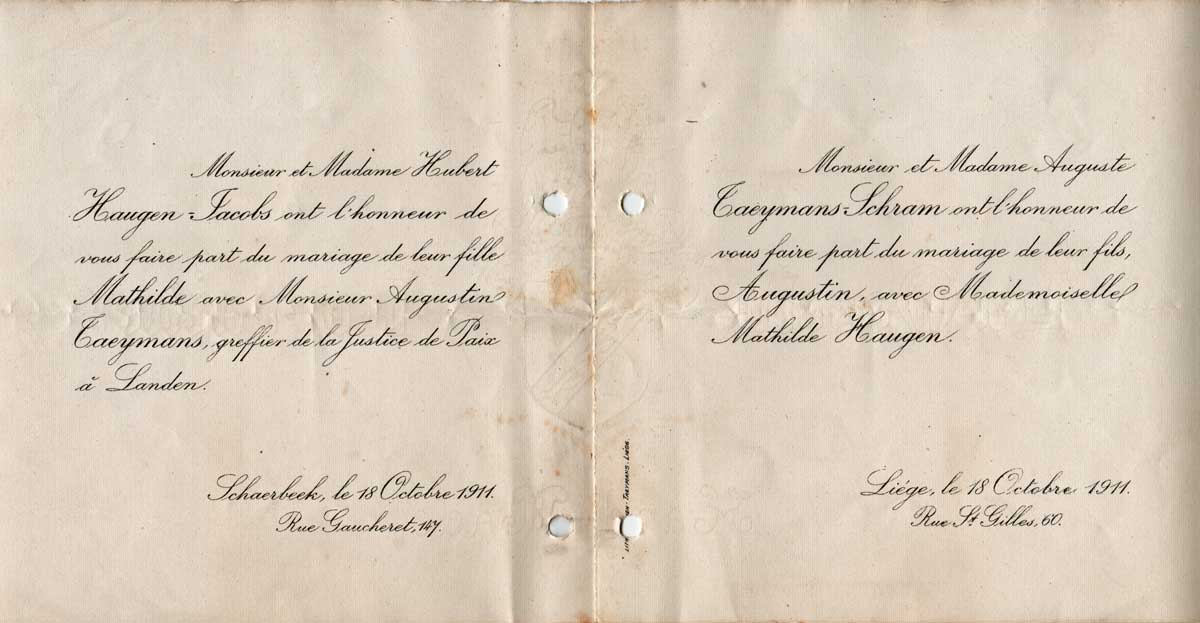 Monsieur et Madame Hubert
Haugen-Jacobs ont l'honneur de
vous faire part du mariage de leur fille
Mathilde avec Monsieur Augustin
Taeymans, greffier de la Justice de Paix
à Landen.
Schaerbeek, le 18 Octobre 1911.
Rue Gaucheret, 147.
Monsieur et Madame Auguste
Taeymans-Schram ont l'honneur de
vous faire part du mariage de leur fils,
Augustin, avec Mademoiselle
Mathilde Haugen.
Liége, le 18 Octobre 1911.
Rue St Gilles, 60.
TAEYMANS. LIÉGE.